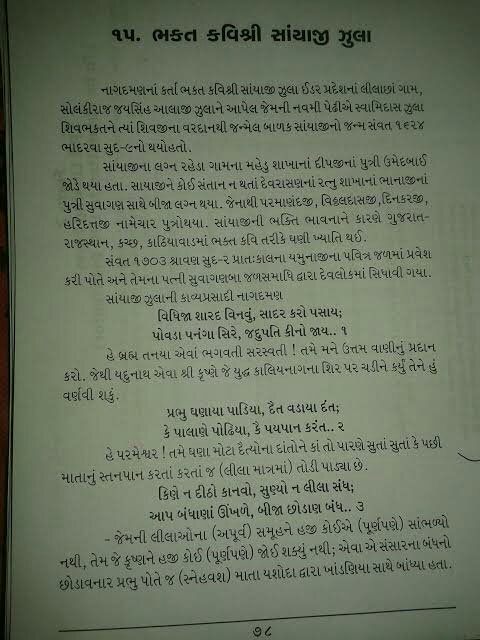 ૧૫. ભકત કવિશ્રી સાંયાજી ઝુલા
નાગદમણનાં કર્તા ભકત કવિશ્રી સાંયાજી ઝુલા ઈડર પ્રદેશનાં લીલાછાં ગામ,
સોલંકીરાજ જયસિંહ આલાજી ઝુલાને આપેલ જેમની નવમી પેઢીએ સ્વામિદાસ ઝુલા
શિવભકતને ત્યાં શિવજીના વરદાનથી જન્મેલ બાળક સાંયાજીનો જન્મ સંવત ૧૬૨૪
ભાદરવા સુદ-૯નો થયોહતો.
સાંયાજીના લગ્ન રહેડા ગામના મહેડુ શાખાનાં દીપજીનાં પુત્રી ઉમેદબાઈ
જોડે થયા હતા. સાયાજીને કોઈ સંતાન ન થતાં દેવરાસણનાં રત્નુ શાખાનાં ભાનાજીનાં
પુત્રી સુવાગણ સાથે બીજા લગ્ન થયા. જેનાથી પરમાણંદજી, વિઠ્ઠલદાસજી,દિનકરજી,
હરિદતજી નામેચાર પુત્રોથયા. સાંયાજીની ભકિત ભાવનાને કારણે ગુજરાત-
રાજસ્થાન, કચ્છ, કાઠિયાવાડમાં ભકત કવિ તરીકે ઘણી ખ્યાતિ થઈ.
સંવત ૧૭૦૩ શ્રાવણ સુદ-૨ પ્રાતઃકાલના યમુનાજીના પવિત્ર જળમાં પ્રવેશ
કરી પોતે અને તેમના પત્ની સુવાગણબા જળસમાધિ દ્વારા દેવલોકમાં સિધાવી ગયા.
સાંયાજી ઝુલાની કાવ્યપ્રસાદી નાગદમણ
વિધિજા શારદ વિનવું, સાદર કરો પસાય;
પોવડા પનંગા સિરે, જદુપતિ કીનો જાય.. ૧
હે બ્રહ્મ તનયા એવાં ભગવતી સરસ્વતી ! તમે મને ઉત્તમ વાણીનું પ્રદાન
કરો. જેથી યદુનાથ એવા શ્રી કૃષ્ણે જે યુદ્ધ કાલિયનાગના શિર પર ચડીને કર્યું તેને હું
વર્ણવી શકું.
પ્રભુ ઘણાયા પાડિયા, દૈત વડાયા દંત;
કે પાલાણે પોઢિયા, કૈ પયપાન કરંત.. ૨
હે પરમેશ્વર ! તમે ઘણા મોટા દૈત્યોના દાંતોને કાં તો પારણે સુતાં સુતાં કે પછી
માતાનું સ્તનપાન કરતાં કરતાં જ (લીલા માત્રમાં) તોડી પાડ્યા છે.
કિણે ન દીઠો કાનવો, સુણ્યો ન લીલા સંધ;
આપ બંધાણાં ઊંખળે, બીજા છોડાણ બંધ.. ૩
- જેમની લીલાઓના (અપૂર્વ) સમૂહને હજી કોઈએ (પૂર્ણપણે) સાંભળ્યો
નથી, તેમ જે કૃષ્ણને હજી કોઈ (પૂર્ણપણે) જોઈ શકયું નથી; એવા એ સંસારના બંધનો
છોડાવનાર પ્રભુ પોતે જ (સ્નેહવશ) માતા યશોદા દ્વારા ખાંડણિયા સાથે બાંધ્યા હતા.
૭૮